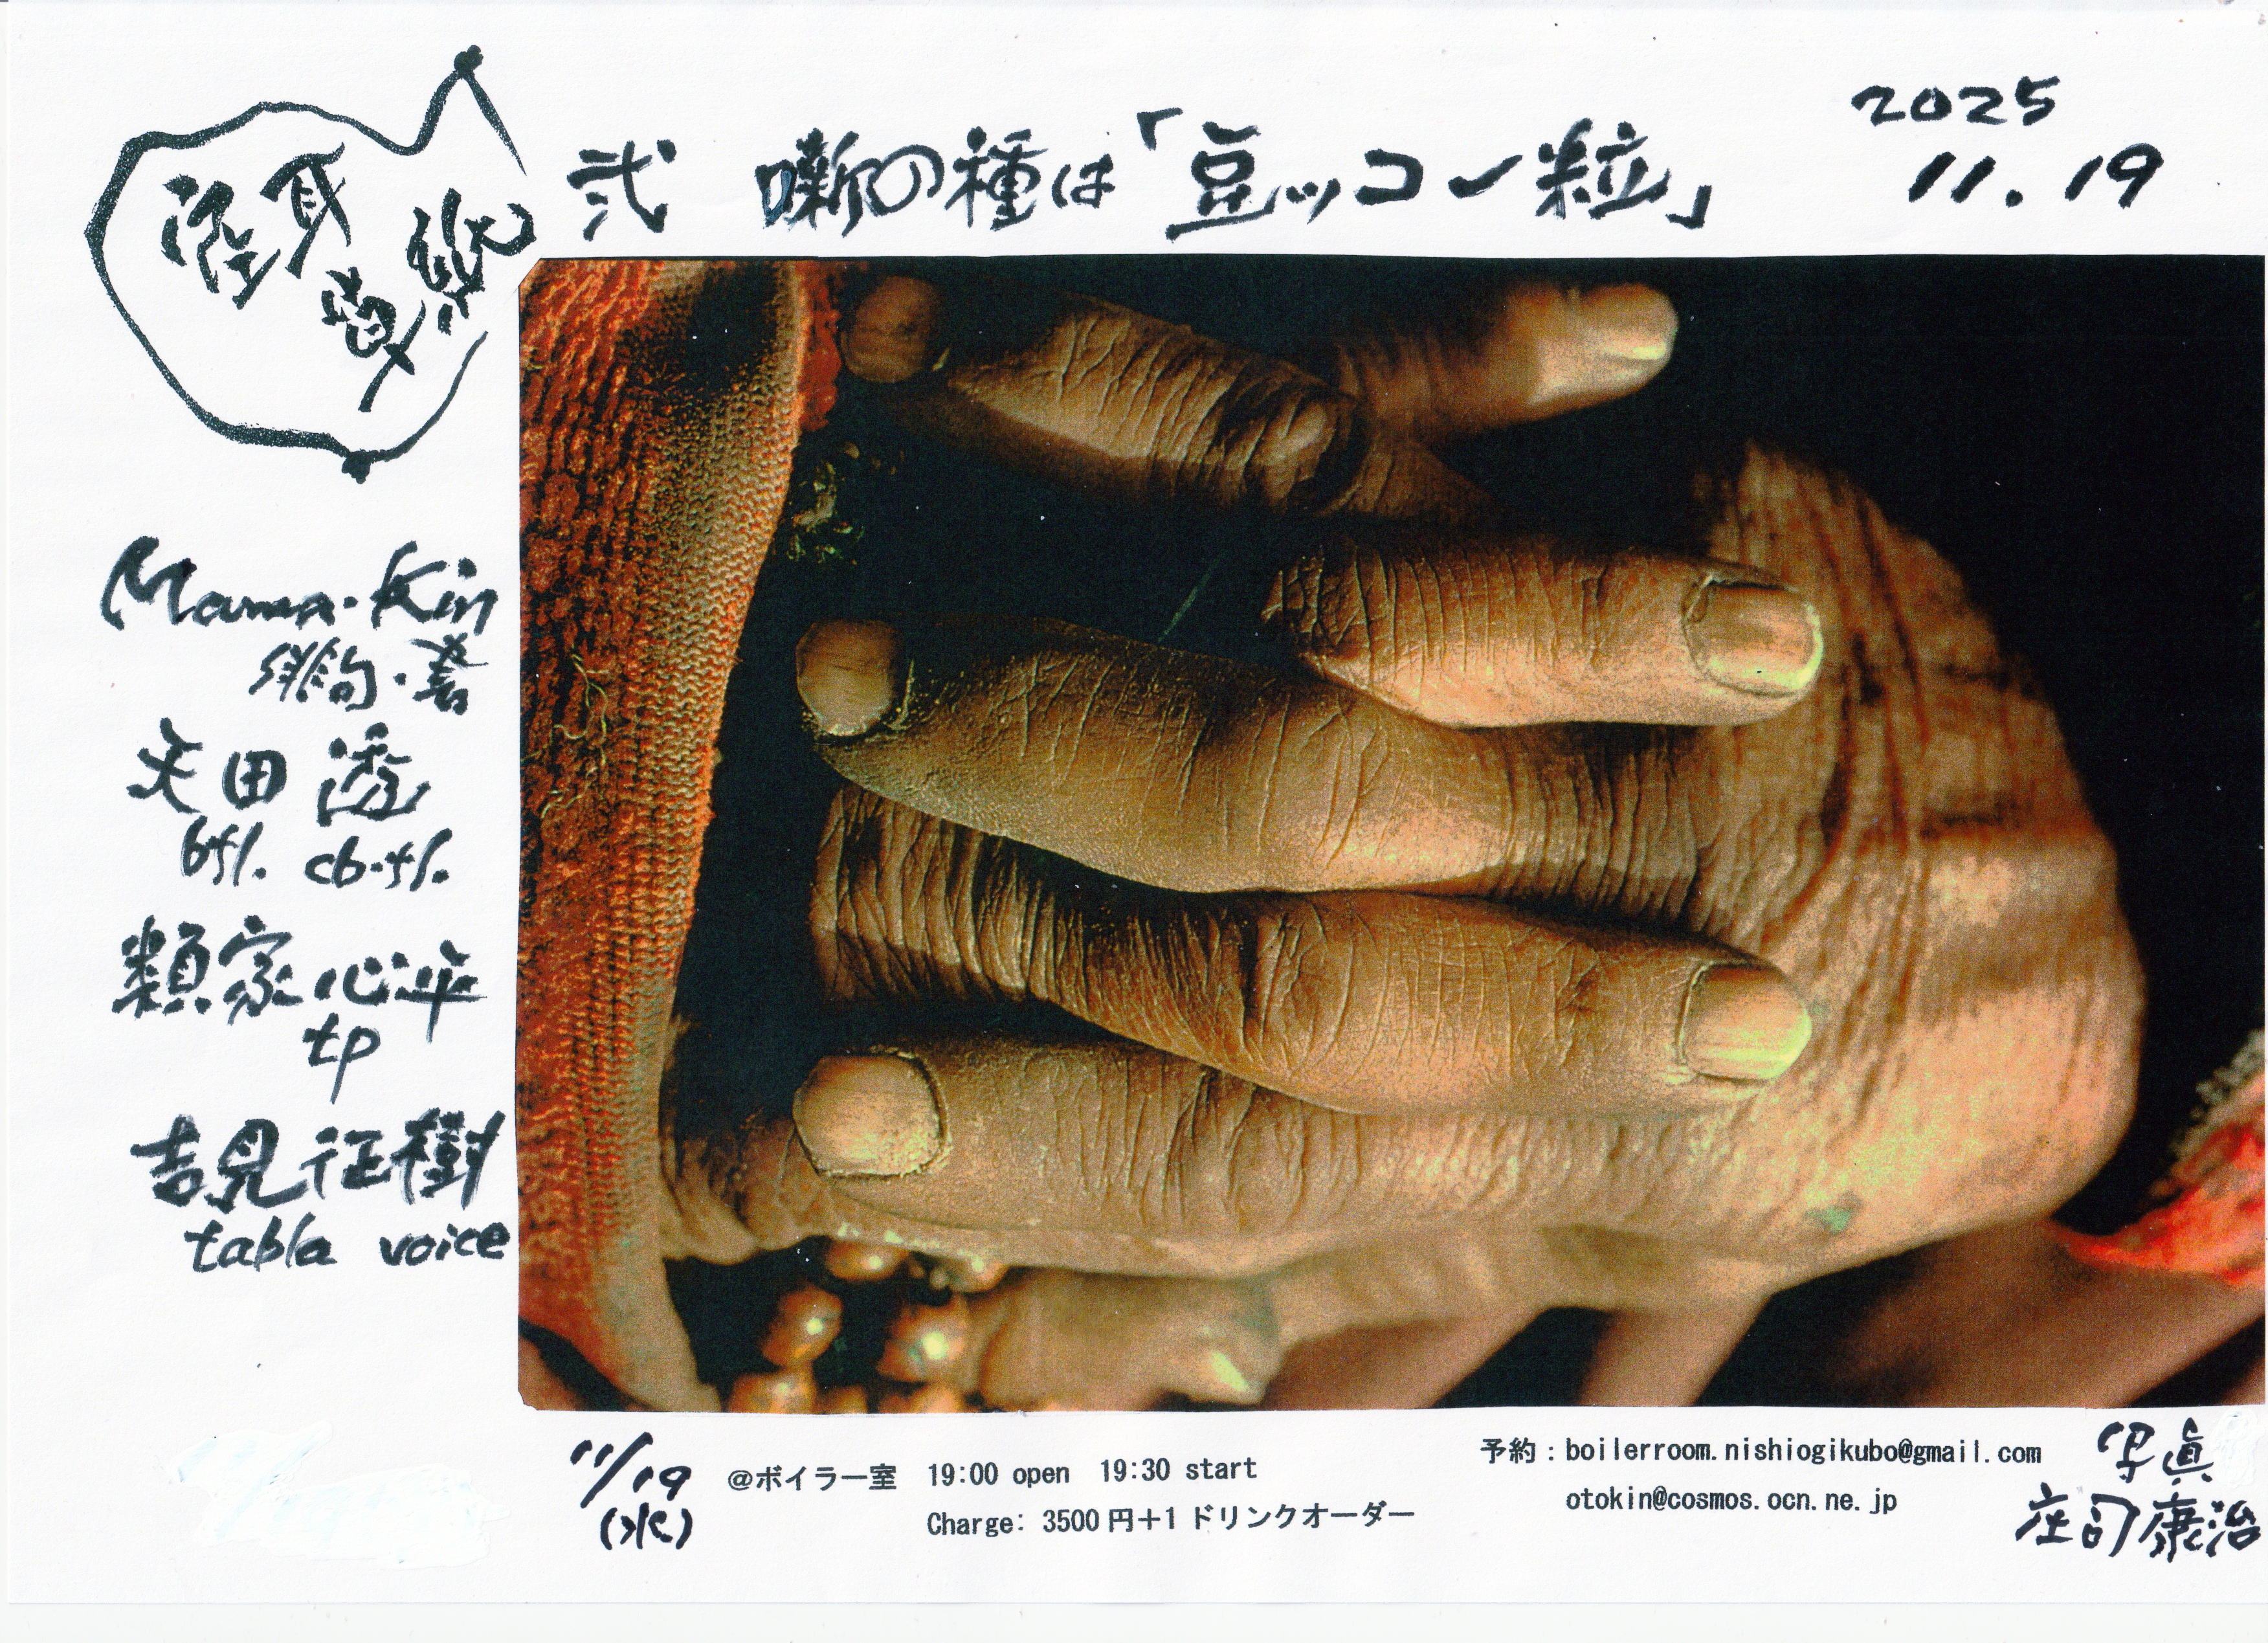 弐 噺の種は「豆ッコ一粒」
2025
11.19
Mama・Kin
俳句・書
矢田 透
bfl. cb.fl.
類家心平
tp
吉見征樹
tabla voice
11/19
(水)
@ボイラー室 19:00 open 19:30 start
Charge: 3500円+1ドリンクオーダー
予約：boilerroom.nishiogikubo@gmail.com
otokin@cosmos.ocn.ne.jp
写真
庄司康治